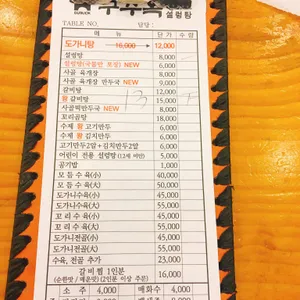 설렁탕
TABLE NO. 담당:
메 뉴 단가 수량
도가니탕 16,000 → 12,000
설렁탕 8,000
설렁탕(국물만 포장) NEW 6,000
사골 육개장 8,000
사골 육개장 만두국 NEW 8,000
갈비탕
왕 갈비탕 13 15,000
사골떡만두국 NEW 8,000
꼬리곰탕 18,000
수제 왕 고기만두 6,000
수제 왕 김치만두 6,000
고기만두2알+김치만두2알 6,000
어린이 전용 설렁탕 (12세 미만) 5,000
공기밥 1,000
모듬수육(小) 40,000
모듬수육(大) 50,000
도가니수육(小) 45,000
도가니수육(大) 55,000
꼬리수육(小) 45,000
꼬리수육(大) 55,000
도가니전골(小) 45,000
도가니전골(大) 55,000
수육, 전골 추가 23,000
갈비찜 1인분 16,000
(순한맛 / 매운맛) (2인분 이상 주문)
소 주 4,000 매화수 4,000